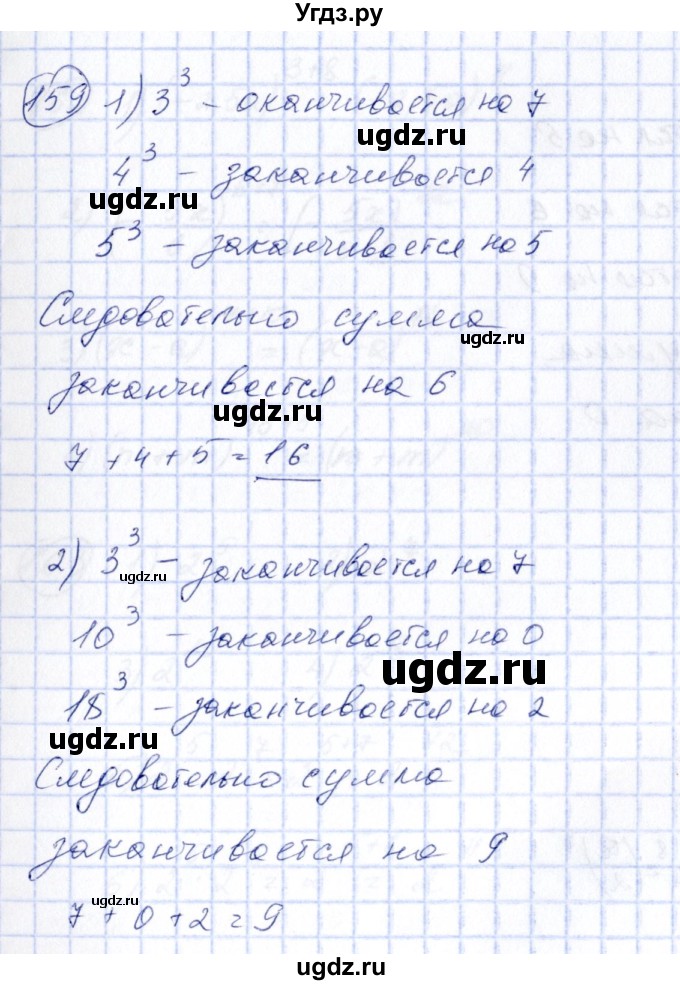 Угдз.ру
159 1) 3³ – оканчивается на 7
ugdz.ru
4³ – заканчивается 4
ugdz.ru
5³ – заканчивается на 5
Следовательно сумма
ugdz.ru
заканчивается на 6
ugdz.ru
7 + 4 + 5 = 16
2) 3³ – заканчивается на 7
ugdz.ru
10³ – заканчивается на 0
ugdz.ru
18³ – заканчивается на 2
ugdz.ru
Следовательно сумма
заканчивается на 9
ugdz.ru
7 + 0 + 2 = 9
ugdz.ru